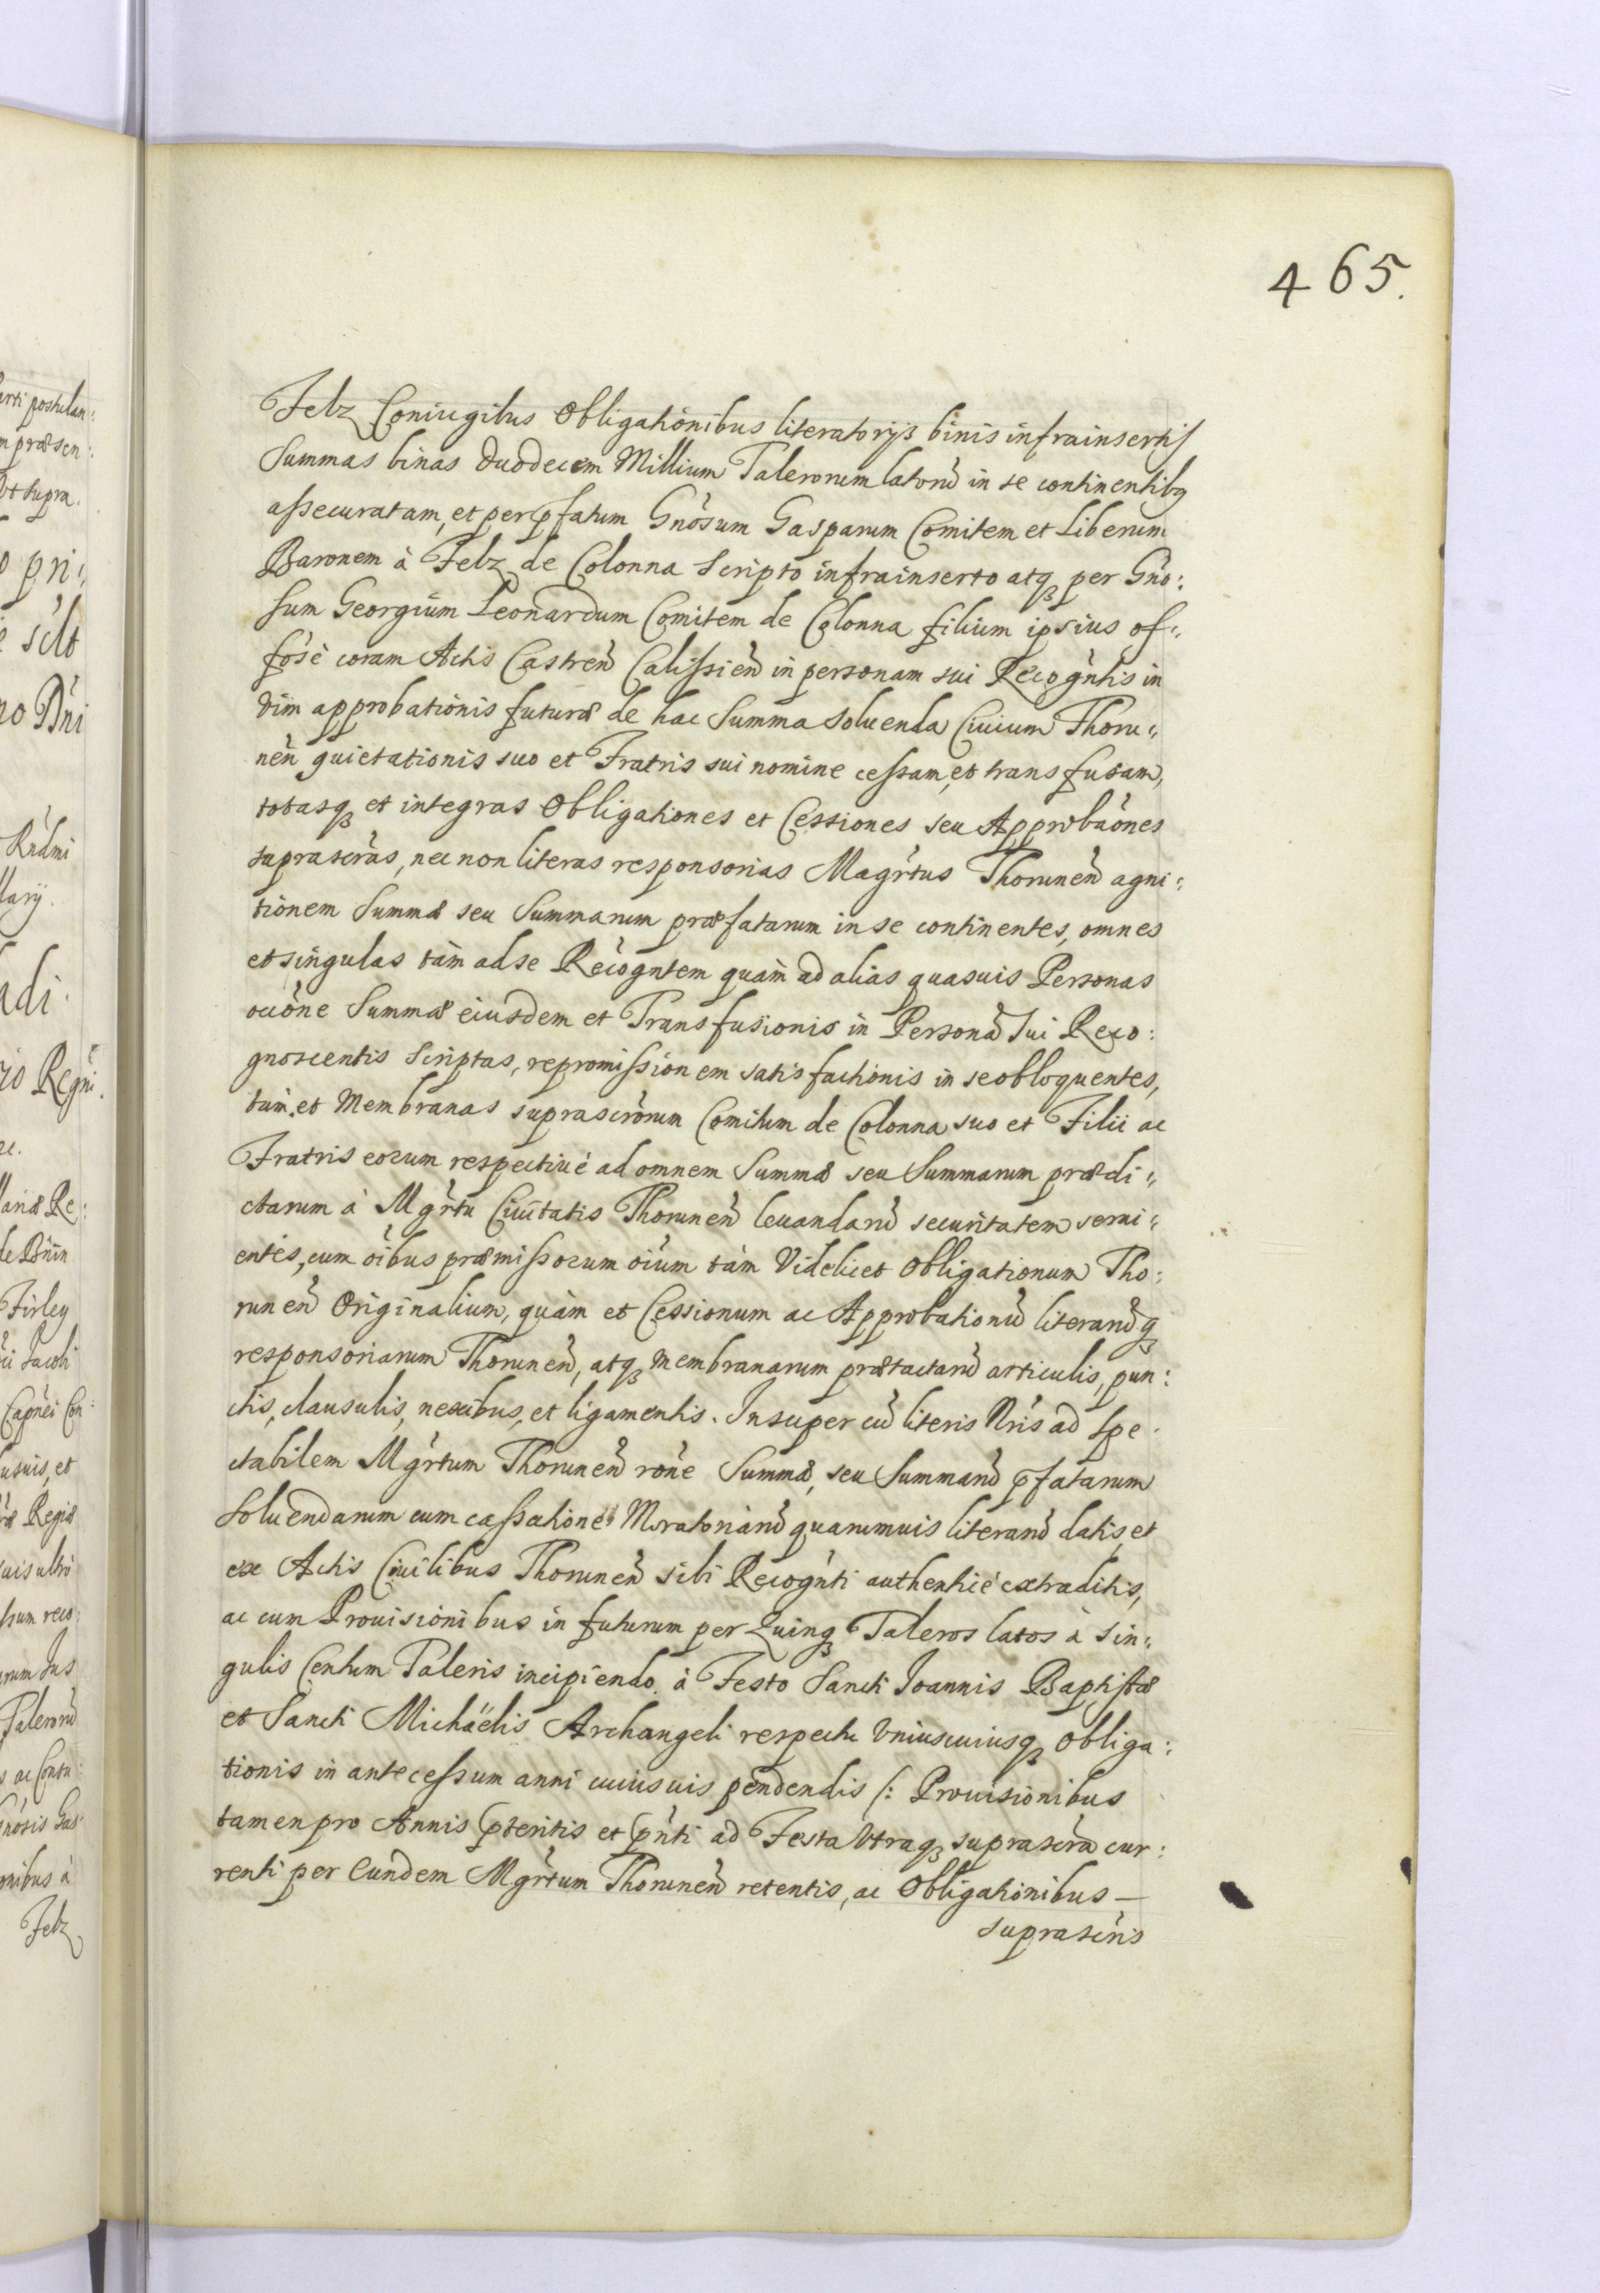 465.
Felz Coniugibus Obligationibus literatorijs binis infrainsertis
Summas binas duodecem Millium Talerorum latorũ in se continentibq
assecuratam, et per pfatum Gnõsum Gasparum Comitem et Liberum
Baronem à Felz de Colonna scripto infrainserto atq3 per Gño:
sum Georgium Leonardum Comitem de Colonna filium ipsius of„
fõsè coram Actis Castreñ Calissieñ in personam sui Recogñtis in
vim approbationis futuræ de hac Summa soluenda Ciuium Thoru„
neñ quietationis suo et Fratris sui nomine cessam, et transfusam,
totasq3 et integras Obligationes et Cessiones seu Approbãones
suprascr̃as, nec non literas responsorias Magr̃tus Thoruneñ agni„
tionem Summæ seu Summarum præfatarum in se continentes, omnes
et singulas tàm ad se Recogñtem quàm ad alias quasuis Personas
occõne Summæ eiusdem et Transfusionis in Personã sui Reco:
gnoscentis scriptas, repromissionem satisfactionis in se obloquentes,
tùm et Membranas suprascr̃orum Comitum de Colonna suo et Filii ac
Fratris eorum respectiuè ad omnem Summæ seu Summarum prædi„
ctarum à Mgr̃tu Ciuitatis Thoruneñ leuandarũ securitatem serui„
entes, cum oĩbus præmissorum oĩum tàm Videlicet Obligationum Tho:
runeñ Originalium, quàm et Cessionum ac Approbationũ literarũq3
responsoriarum Thoruneñ, atq3 membranarum prætactarũ articulis, pun:
ctis, clausulis, nexibus, et ligamentis. Insuper cũ literis Nr̃is ad Spe.
ctabilem Mgr̃tum Thoruneñ rõne Summæ, seu Summarũ pfatarum
soluendarum cum cassatione Moratoriarũ quarumuis literarũ datis, et
ex Actis Ciuilibus Thoruneñ sibi Recogñti authenticè extraditis,
ac cum Prouisionibus in futurum per Quinq3 Taleros latos à sin„
gulis Centum Taleris incipiendo à Festo Sancti Joannis Baptistæ
et Sancti Michäelis Archangeli respectu Vniuscuiusq3 Obliga:
tionis in antecessum anni cuiusuis pendendis /: Prouisionibus
tamen pro Annis pteritis et pñti ad Festa Vtraq3 suprascr̃a cur:
renti per Eundem Mgr̃tum Thoruneñ retentis, ac Obligationibus —
suprascr̃is